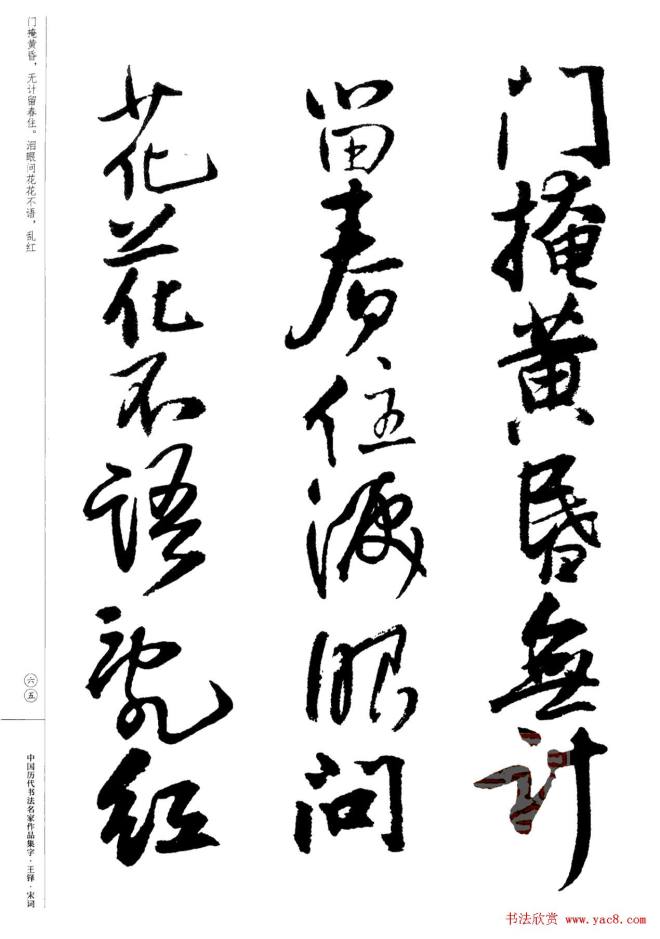 門掩黄昏無計
留春住淚眼問
花花不語亂紅
门掩黄昏，无计留春住。泪眼问花花不语，乱红
六五
中国历代书法名家作品集字·王铎·宋词
书法欣赏 www.yac8.com